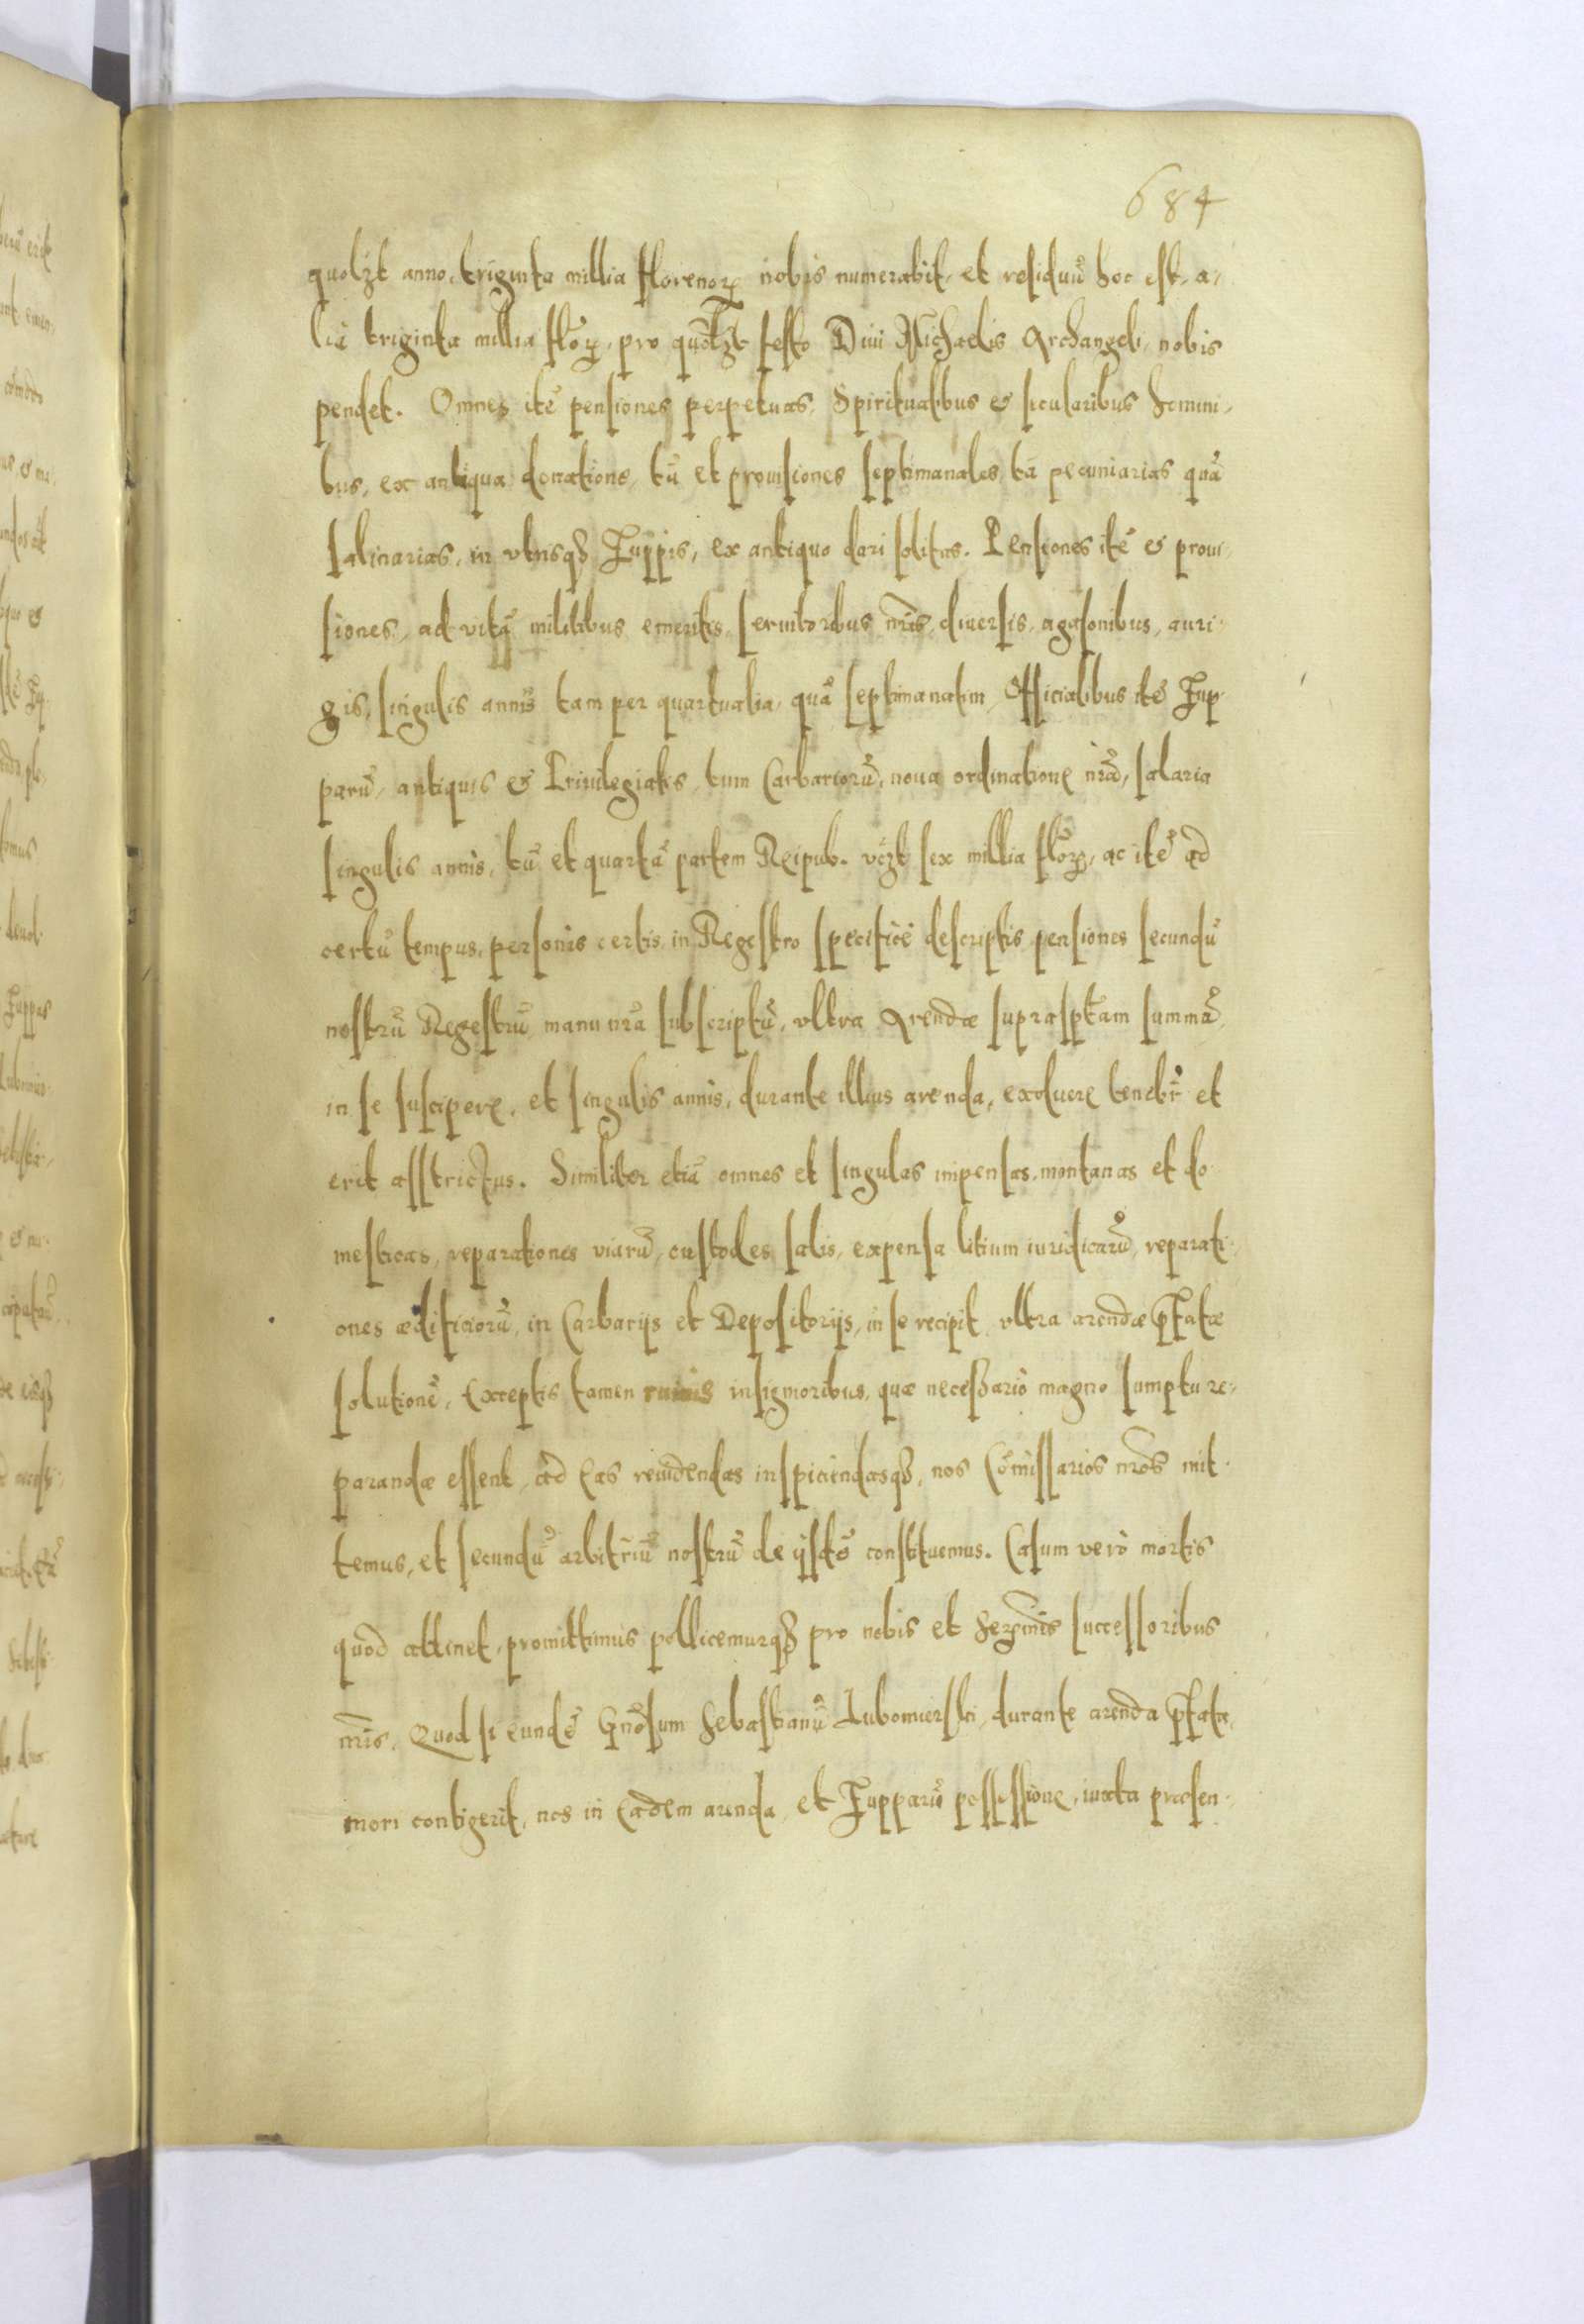 684
quolzt anno, triginta millia florenoꝝ nobis numerabit, et residuũ hoc est, a-
lia triginta millia floꝝ, pro quolzt festo Diui Michaelis Archangeli, nobis
pendet. Omnes itẽ pensiones perpetuas, Spiritualibus & secularibus homini-
bus, ex antiqua donatione, tũ et prouisiones septimanales, tã pecuniarias quã
salinarias, in vtrisqꝫ Zuppis, ex antiquo dari solitas. Pensiones itẽ & proui-
siones, ad vitã militibus emeritis, seruitoribus nr̃is, diuersis, agasonibus, auri-
gis, singulis annis tam per quartualia, quã septimanatim, Officialibus itẽ Zup-
parũ, antiquis & Priuilegiatis, tum Carbariorũ, noua ordinatione nr̃a, salaria
singulis annis, tũ et quartã partem Reipub. vczt sex millia floꝝ, ac itẽ ad
certũ tempus, personis certis in Regestro specifice descriptis pensiones secundũ
nostrũ Regestrũ manu nr̃a subscriptũ, vltra Arendæ suprasptam summã,
in se suscipere, et singulis annis, durante illius arenda, exoluere tenebr̃ et
erit asstrictus. Similiter etiã omnes et singulas impensas, montanas et do-
mesticas, reparationes viarũ, custodes salis, expensa litium iuridicarũ, reparati-
ones ædificiorũ, in Carbarijs et Depositorijs, in se recipit vltra arendæ p̃fatæ
solutionẽ, Exceptis tamen ruinis insignioribus, quæ necessariò magno sumptu re-
parandæ essent, ad Eas reuidendas inspiciendasqꝫ, nos Cõmissarios nr̃os mit-
temus, et secundũ arbitriũ nostrũ de ijsdẽ constituemus. Casum verò mortis
quod attinet, promittimus pollicemurqꝫ pro nobis et Serẽmis successoribus
nr̃is. Quod si eundẽ Gnõsum Sebastianũ Lubomierski, durante arenda p̃fata,
mori contigerit, nos in Eadem arenda, et Zupparũ possessione, iuxta præsen-